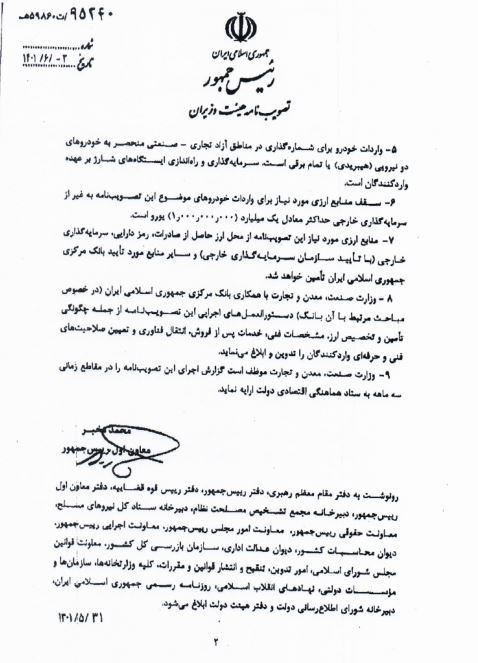 ۹۵۲۴۰/ت۵۹۸۶۰هـ
شماره
تاریخ ۱۴۰۱/۶/۰۲
جمهوری اسلامی ایران
رئیس جمهور
تصویب نامه هیئت وزیران
۵- واردات خودرو برای شماره‌گذاری در مناطق آزاد تجاری - صنعتی منحصر به خودروهای
دو نیرویی (هیبریدی) یا تمام برقی است. سرمایه‌گذاری و راه‌اندازی ایستگاه‌های شارژ بر عهده
واردکنندگان است.
۶- سقف منابع ارزی مورد نیاز برای واردات خودروهای موضوع این تصویب‌نامه به غیر از
سرمایه‌گذاری خارجی حداکثر معادل یک میلیارد (۱٫۰۰۰٫۰۰۰٫۰۰۰) یورو است.
۷- منابع ارزی مورد نیاز این تصویب‌نامه از محل ارز حاصل از صادرات، رمز دارایی، سرمایه‌گذاری
خارجی (با تأیید سازمان سرمایه‌گذاری خارجی) و سایر منابع مورد تأیید بانک مرکزی
جمهوری اسلامی ایران تأمین خواهد شد.
۸- وزارت صنعت، معدن و تجارت با همکاری بانک مرکزی جمهوری اسلامی ایران (در خصوص
مباحث مرتبط با آن بانک) دستورالعمل‌های اجرایی این تصویب‌نامه از جمله چگونگی
تأمین و تخصیص ارز، مشخصات فنی، خدمات پس از فروش، انتقال فناوری و تعیین صلاحیت‌های
فنی و حرفه‌ای واردکنندگان را تدوین و ابلاغ می‌نماید.
۹- وزارت صنعت، معدن و تجارت موظف است گزارش اجرای این تصویب‌نامه را در مقاطع زمانی
سه ماهه به ستاد هماهنگی اقتصادی دولت ارایه نماید.
محمد مخبر
معاون اول رییس‌جمهور
رونوشت به دفتر مقام معظم رهبری، دفتر رییس‌جمهور، دفتر رییس قوه قضاییه، دفتر معاون اول
رییس‌جمهور، دبیرخانه مجمع تشخیص مصلحت نظام، دبیرخانه ستاد کل نیروهای مسلح،
معاونت حقوقی رییس‌جمهور، معاونت امور مجلس رییس‌جمهور، معاونت اجرایی رییس‌جمهور،
دیوان محاسبات کشور، دیوان عدالت اداری، سازمان بازرسی کل کشور، معاونت قوانین
مجلس شورای اسلامی، امور تدوین، تنقیح و انتشار قوانین و مقررات، کلیه وزارتخانه‌ها، سازمان‌ها و
مؤسسات دولتی، نهادهای انقلاب اسلامی، روزنامه رسمی جمهوری اسلامی ایران،
دبیرخانه شورای اطلاع‌رسانی دولت و دفتر هیئت دولت ابلاغ می‌شود.
۱۴۰۱/۵/۳۱
۲